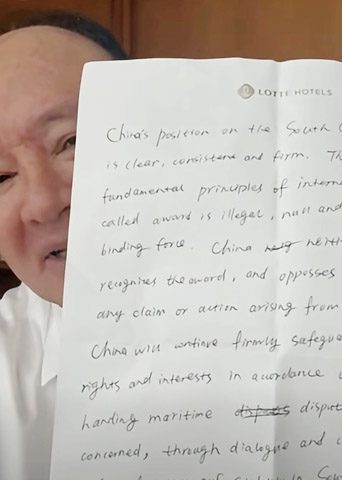 LOTTE HOTELS
China's position on the South
is clear, consistent and firm. Th
fundamental principles of intern
called award is illegal, null and
binding force. China neith
recognizes the award, and opposses
any claim or action arising from
China will continue firmly safegu
rights and interests in accordance
handing maritime disput
concerned, through dialogue and